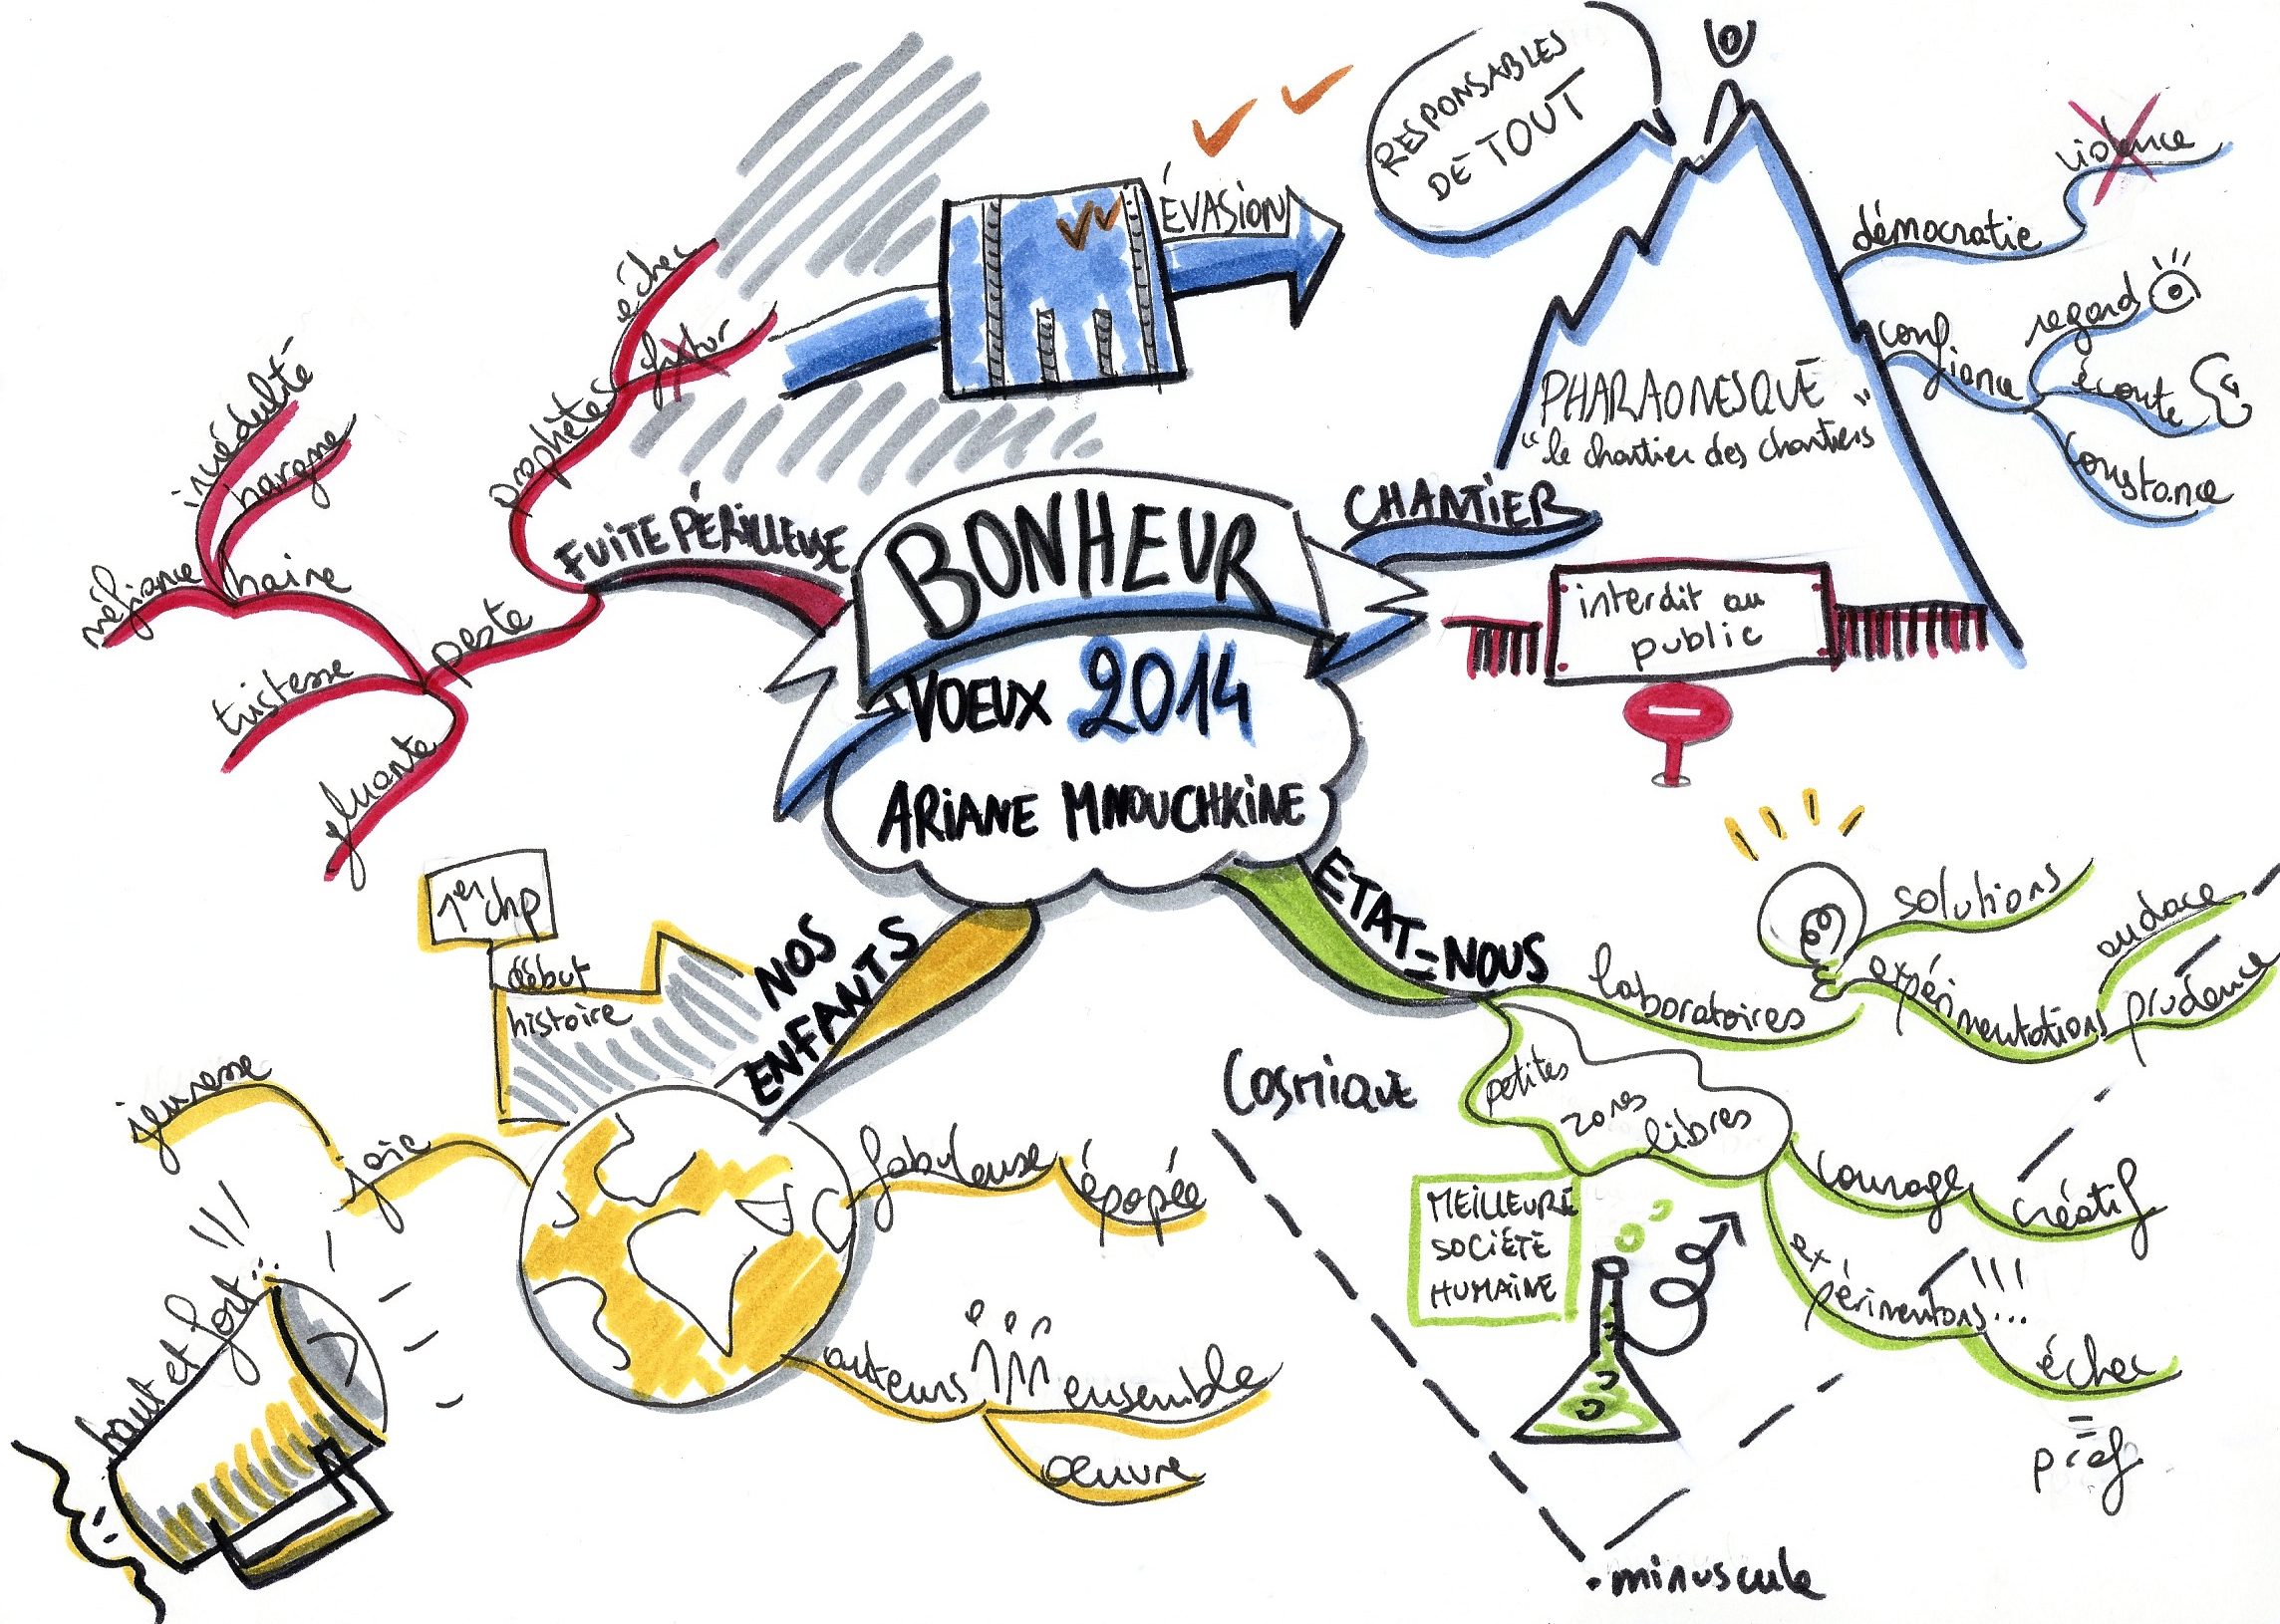 BONHEUR
VOEUX 2014
ARIANE MNOUCHKINE
FUITE PÉRILLEUSE
prophètes
échec
futur
ÉVASION
peste
haine
incrédulité
hargne
méfiance
tristesse
gluante
CHANTIER
RESPONSABLES
DE TOUT
PHARAONESQUE
"le chantier des chantiers"
interdit au
public
démocratie
violence
confiance
regard
écoute
constance
ETAT=NOUS
laboratoires
solutions
expérimentations
audace
prudence
petites
zones
libres
courage
créatif
expérimentons...
échec
=
pief
MEILLEURE
SOCIÉTÉ
HUMAINE
Cosmique
minuscule
NOS
ENFANTS
1er chp
début
histoire
joie
jeunesse
haut et fort...
fabuleuse
épopée
auteurs
ensemble
œuvre